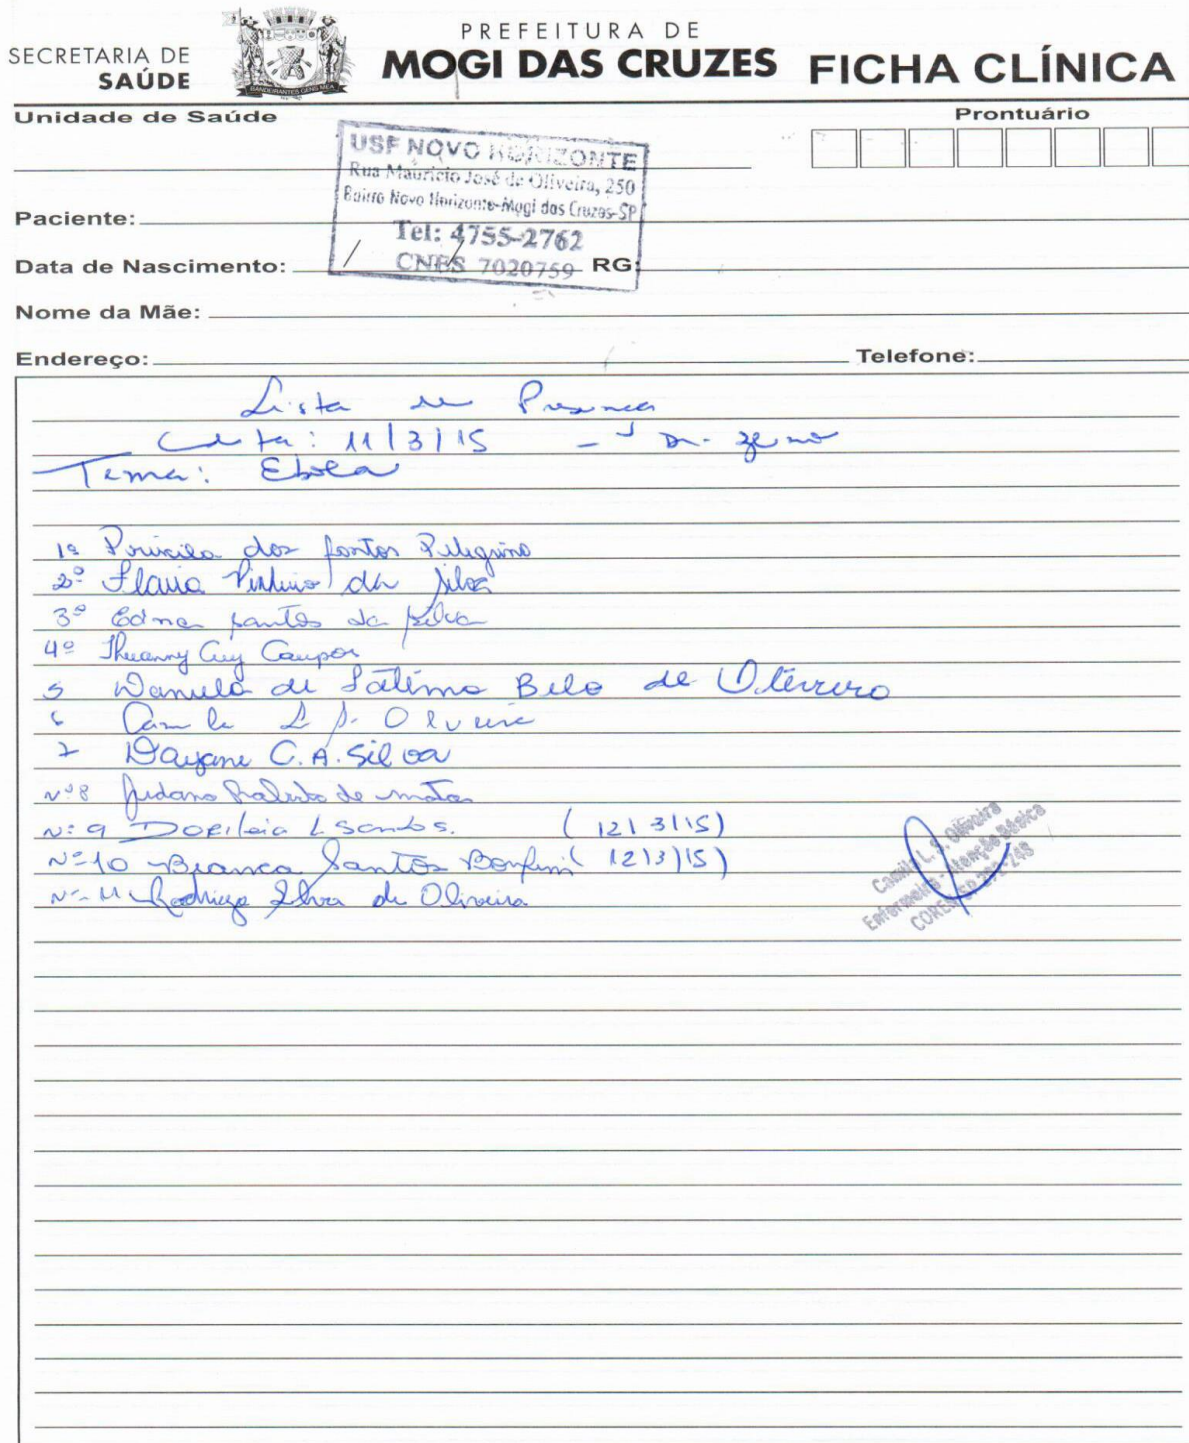 SECRETARIA DE
SAÚDE
BANDEIRANTES GENS MEA
PREFEITURA DE
MOGI DAS CRUZES
FICHA CLÍNICA
Unidade de Saúde
Prontuário
USF NOVO HORIZONTE
Rua Maurício José de Oliveira, 250
Bairro Novo Horizonte-Mogi das Cruzes-SP
Tel: 4755-2762
CNES 7020759
Paciente:
Data de Nascimento: / / RG:
Nome da Mãe:
Endereço: Telefone:
Lista de Presença
data: 11/3/15
Tema: Ebola
1º Priscila dos Santos Pelegrino
2º Flavia Pinheiro da Silva
3º Edna Santos da Silva
4º Campos
5 de Fátima Belo de Oliveira
6 Camila L S. Oliveira
7 Dayane C. A. Silva
Nº 8 de
Nº 9 L Santos. (12/3/15)
Nº 10 Bianca Santos Bonfim (12/3/15)
Nº 11 Rodrigo Silva de Oliveira
Camila L. S. Oliveira
Enfermeira - Atenção Básica
COREN SP 292-248